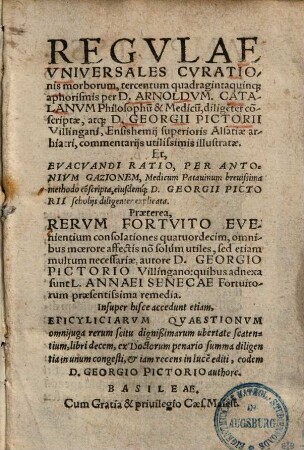 REGVLAE
VNIVERSALES CVRATIO-
nis morborum, tercentum quadragintaquinq;
aphorismis per D. ARNOLDVM. CATA-
LANVM Philosophũ & Medicũ, diligẽter cõ-
scriptæ, atq; D. GEORGII PICTORII
Villingani, Ensishemij superioris Alsatiæ ar-
hiatri, commentarijs utilissimis illustratæ.
Et,
EVACVANDI RATIO, PER ANTO-
NIVM GAZIONEM, Medicum Patauinum breuissima
methodo cõscripta, eiusdemq; D. GEORGII PICTO
RII scholijs diligenter explicata.
Præterea,
RERVM FORTVITO EVE-
hientium consolationes quatuordecim, omni-
bus mœrore affectis nõ solùm utiles, sed etiam
multum necessariæ, autore D. GEORGIO
PICTORIO Villingano: quibus adnexa
sunt L. ANNAEI SENECAE Fortuito-
rum præsentissima remedia.
Insuper hisce accedunt etiam.
EPICYLICIARVM QVAESTIONVM
omnijuga rerum scitu dignißimarum ubertate scaten-
tium, libri decem, ex Doctorum penario summa diligen
tia in unum congesti, & iam recens in lucẽ editi, eodem
D. GEORGIO PICTORIO authore.
BASILEAE.
Cum Gratia & priuilegio Cæs. Maiest.
IN
AUGSBURG